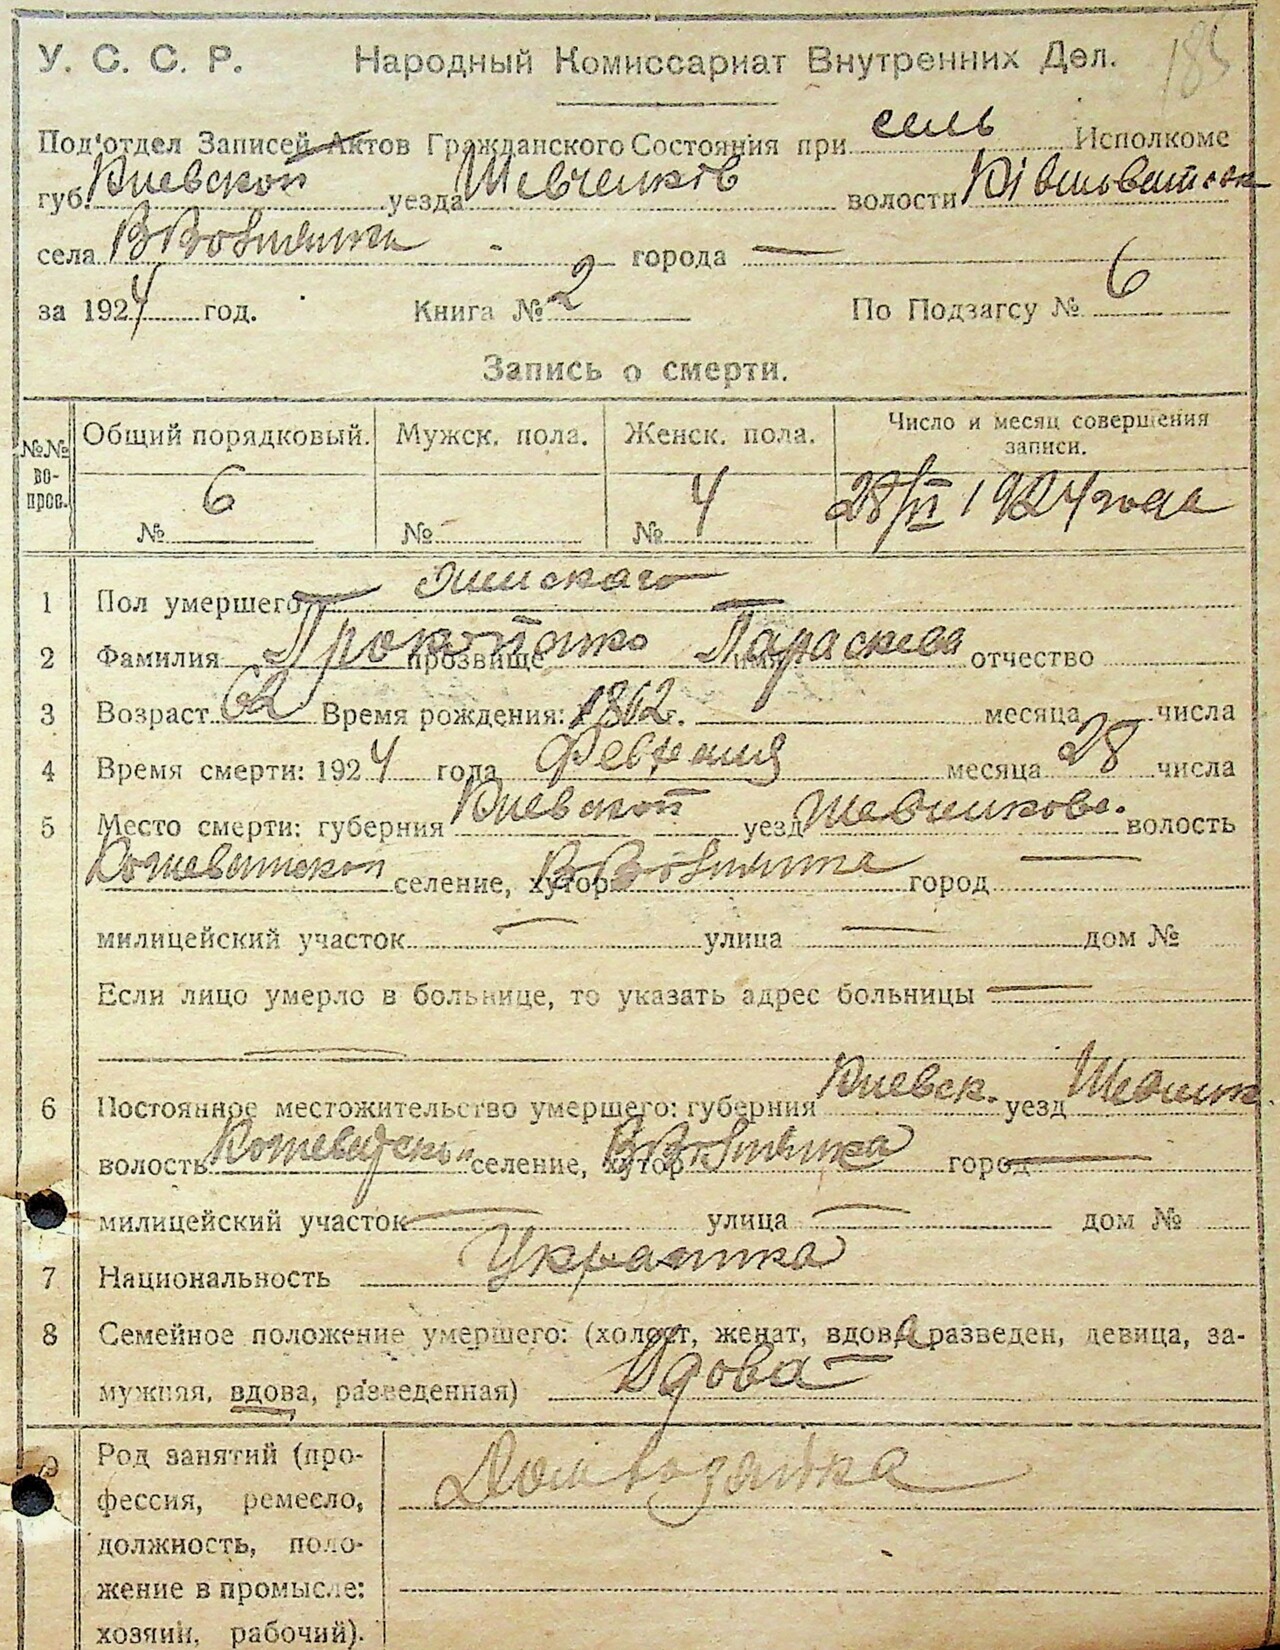 У. С. С. Р. Народный Комиссариат Внутренних Дел. 185
Под'отдел Записей Актов Гражданского Состояния при сель Исполкоме
губ. Киевской уезда Шевченков волости
села В Вовнянки города —
за 1924 год. Книга № 2 По Подзагсу № 6
Запись о смерти.
№№ вопрос. Общий порядковый. Мужск. пола. Женск. пола. Число и месяц совершения записи.
№ 6 № № 4 28/II 1924 года
1 Пол умершего женскаго
2 Фамилия прозвище имя Параскева отчество
3 Возраст 62 Время рождения: 1862 г. месяца числа
4 Время смерти: 1924 года Февраля месяца 28 числа
5 Место смерти: губерния Киевской уезд Шевченково. волость
селение, хутор В Вовнянка город —
милицейский участок — улица — дом №
Если лицо умерло в больнице, то указать адрес больницы —
—
6 Постоянное местожительство умершего: губерния Киевск. уезд Шевченк.
волость селение, хутор В Вовнянка город —
милицейский участок — улица — дом №
7 Национальность Украинка
8 Семейное положение умершего: (холост, женат, вдова разведен, девица, за-
мужняя, вдова, разведенная) Вдова
9 Род занятий (про-
фессия, ремесло,
должность, поло-
жение в промысле:
хозяин, рабочий).